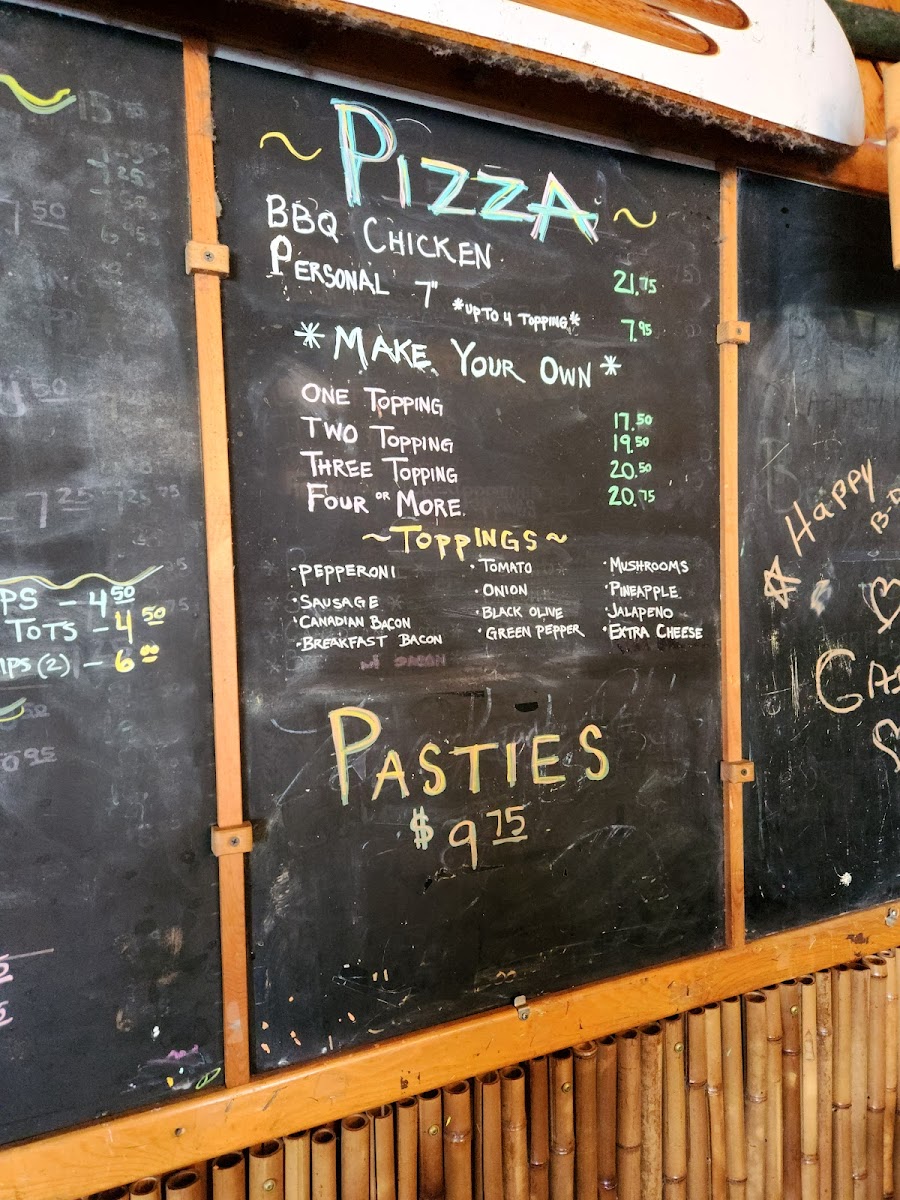 ~ PIZZA ~
BBQ CHICKEN 21.75
PERSONAL 7" *UP TO 4 TOPPING* 7.95
*MAKE YOUR OWN*
ONE TOPPING 17.50
TWO TOPPING 19.50
THREE TOPPING 20.50
FOUR OR MORE 20.75
~TOPPINGS~
·PEPPERONI
·SAUSAGE
·CANADIAN BACON
·BREAKFAST BACON
·TOMATO
·ONION
·BLACK OLIVE
·GREEN PEPPER
·MUSHROOMS
·PINEAPPLE
·JALAPENO
·EXTRA CHEESE
PASTIES
$9 75
7 50
7 25
PS - 4 50
TOTS - 4 50
IPS (2) - 6 00
HAPPY
B-D
GA